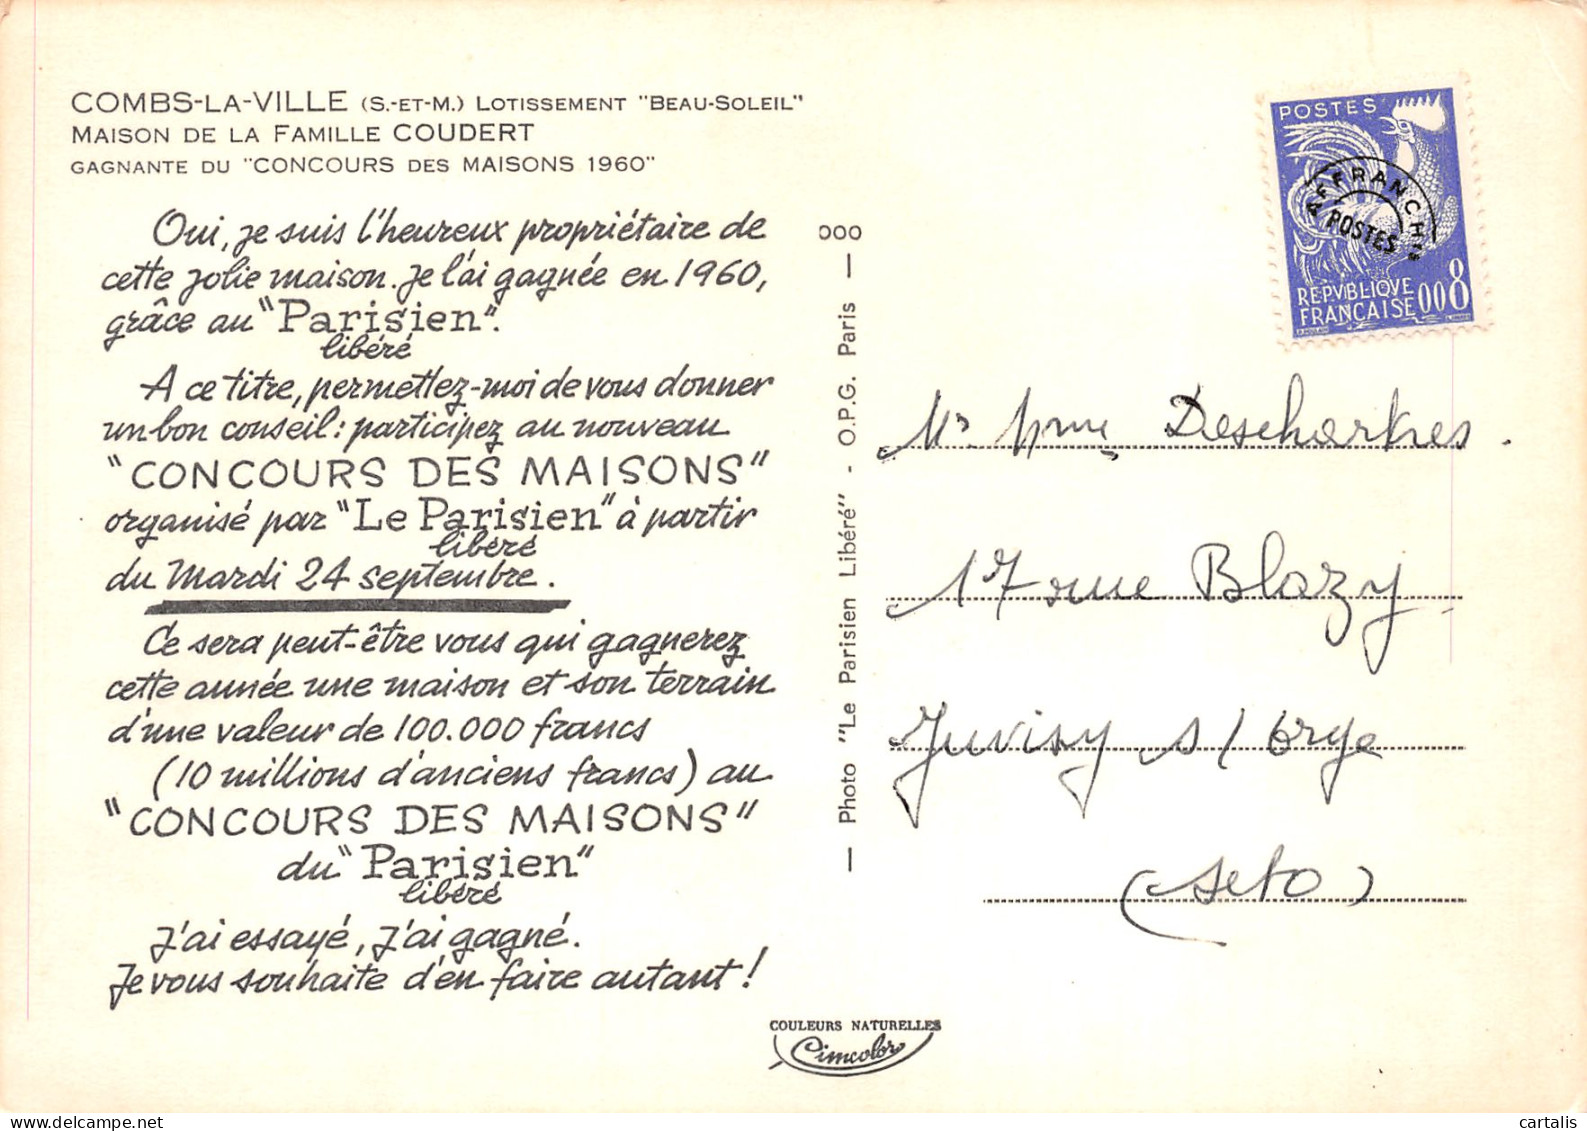 COMBS-LA-VILLE (S.-ET-M.) LOTISSEMENT "BEAU-SOLEIL"
MAISON DE LA FAMILLE COUDERT
GAGNANTE DU "CONCOURS DES MAISONS 1960"
Oui, je suis l'heureux propriétaire de
cette jolie maison. Je l'ai gagnée en 1960,
grâce au "Parisien".
libéré
A ce titre, permettez-moi de vous donner
un bon conseil : participez au nouveau
"CONCOURS DES MAISONS"
organisé par "Le Parisien" à partir
libéré
du Mardi 24 septembre.
Ce sera peut-être vous qui gagnerez
cette année une maison et son terrain
d'une valeur de 100.000 francs
(10 millions d'anciens francs) au
"CONCOURS DES MAISONS"
du "Parisien"
libéré
J'ai essayé, j'ai gagné.
Je vous souhaite d'en faire autant !
000
— Photo "Le Parisien Libéré" - O.P.G. Paris —
COULEURS NATURELLES
Cimcolor
POSTES
AFFRANCHts
POSTES
REPVBLIQVE
FRANÇAISE 008
Mr Mme Deschartres.
17 rue Blazy
Juvisy s/Orge
(Seto)
cartalis